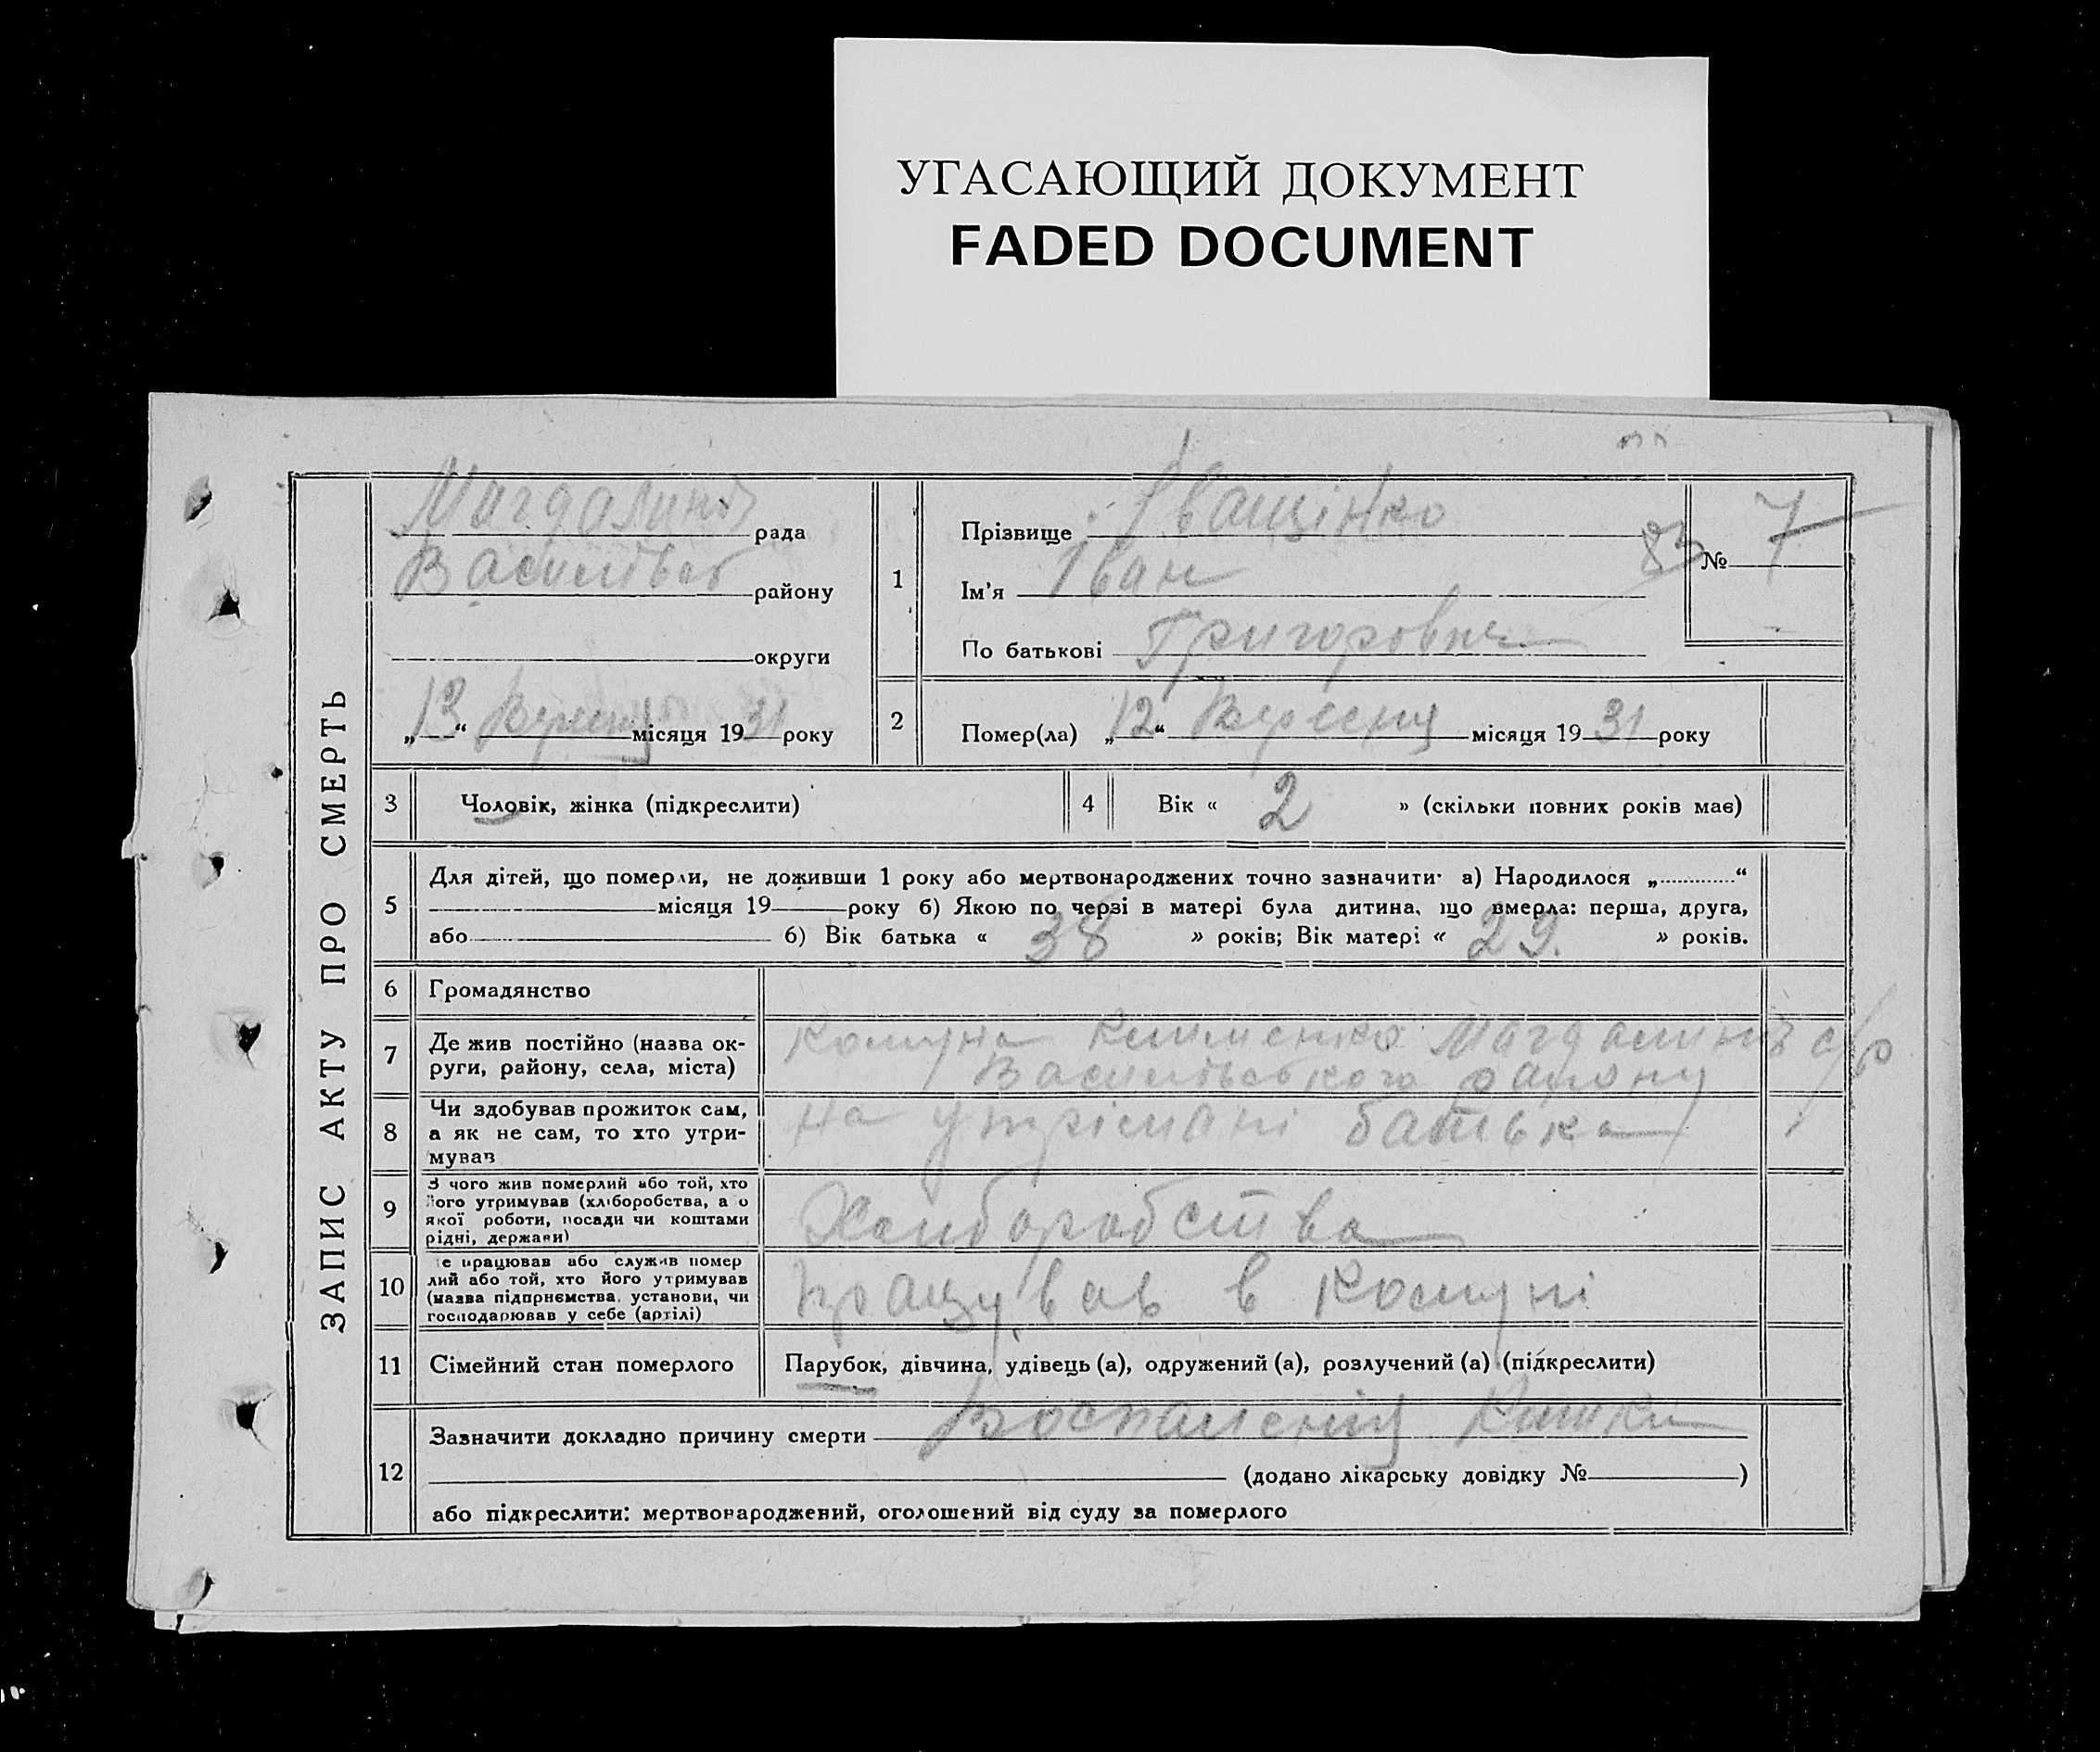 УГАСАЮЩИЙ ДОКУМЕНТ
FADED DOCUMENT
ЗАПИС АКТУ ПРО СМЕРТЬ
Магдалині рада
Васильвсь району
округи
„13“ Вересня місяця 1931 року
1
Прізвище Іващінко
Ім'я Іван
По батькові Григорович
83
№ 7
2
Помер(ла) „12“ Вересня місяця 1931 року
3 Чоловік, жінка (підкреслити)
4 Вік « 2 » (скільки повних років має)
5
Для дітей, що померли, не доживши 1 року або мертвонароджених точно зазначити: а) Народилося „............“
місяця 19 року б) Якою по черзі в матері була дитина, що вмерла: перша, друга,
або б) Вік батька « 38 » років; Вік матері « 29. » років.
6 Громадянство
7
Де жив постійно (назва ок-
руги, району, села, міста)
Комуна Клименко Магдалинів с/р
Васильвського району
8
Чи здобував прожиток сам,
а як не сам, то хто утри-
мував
на утрімані батька
9
З чого жив померлий або той, хто
його утримував (хліборобства, а о
якої роботи, посади чи коштами
рідні, держави)
Хлиборобства
10
е працював або служив помер
лий або той, хто його утримував
(назва підприємства, установи, чи
господарював у себе (артілі)
працував в Комуні
11 Сімейний стан померлого
Парубок, дівчина, удівець (а), одружений (а), розлучений (а) (підкреслити)
12
Зазначити докладно причину смерти Воспаления Кишки
(додано лікарську довідку № )
або підкреслити: мертвонароджений, оголошений від суду за померлого